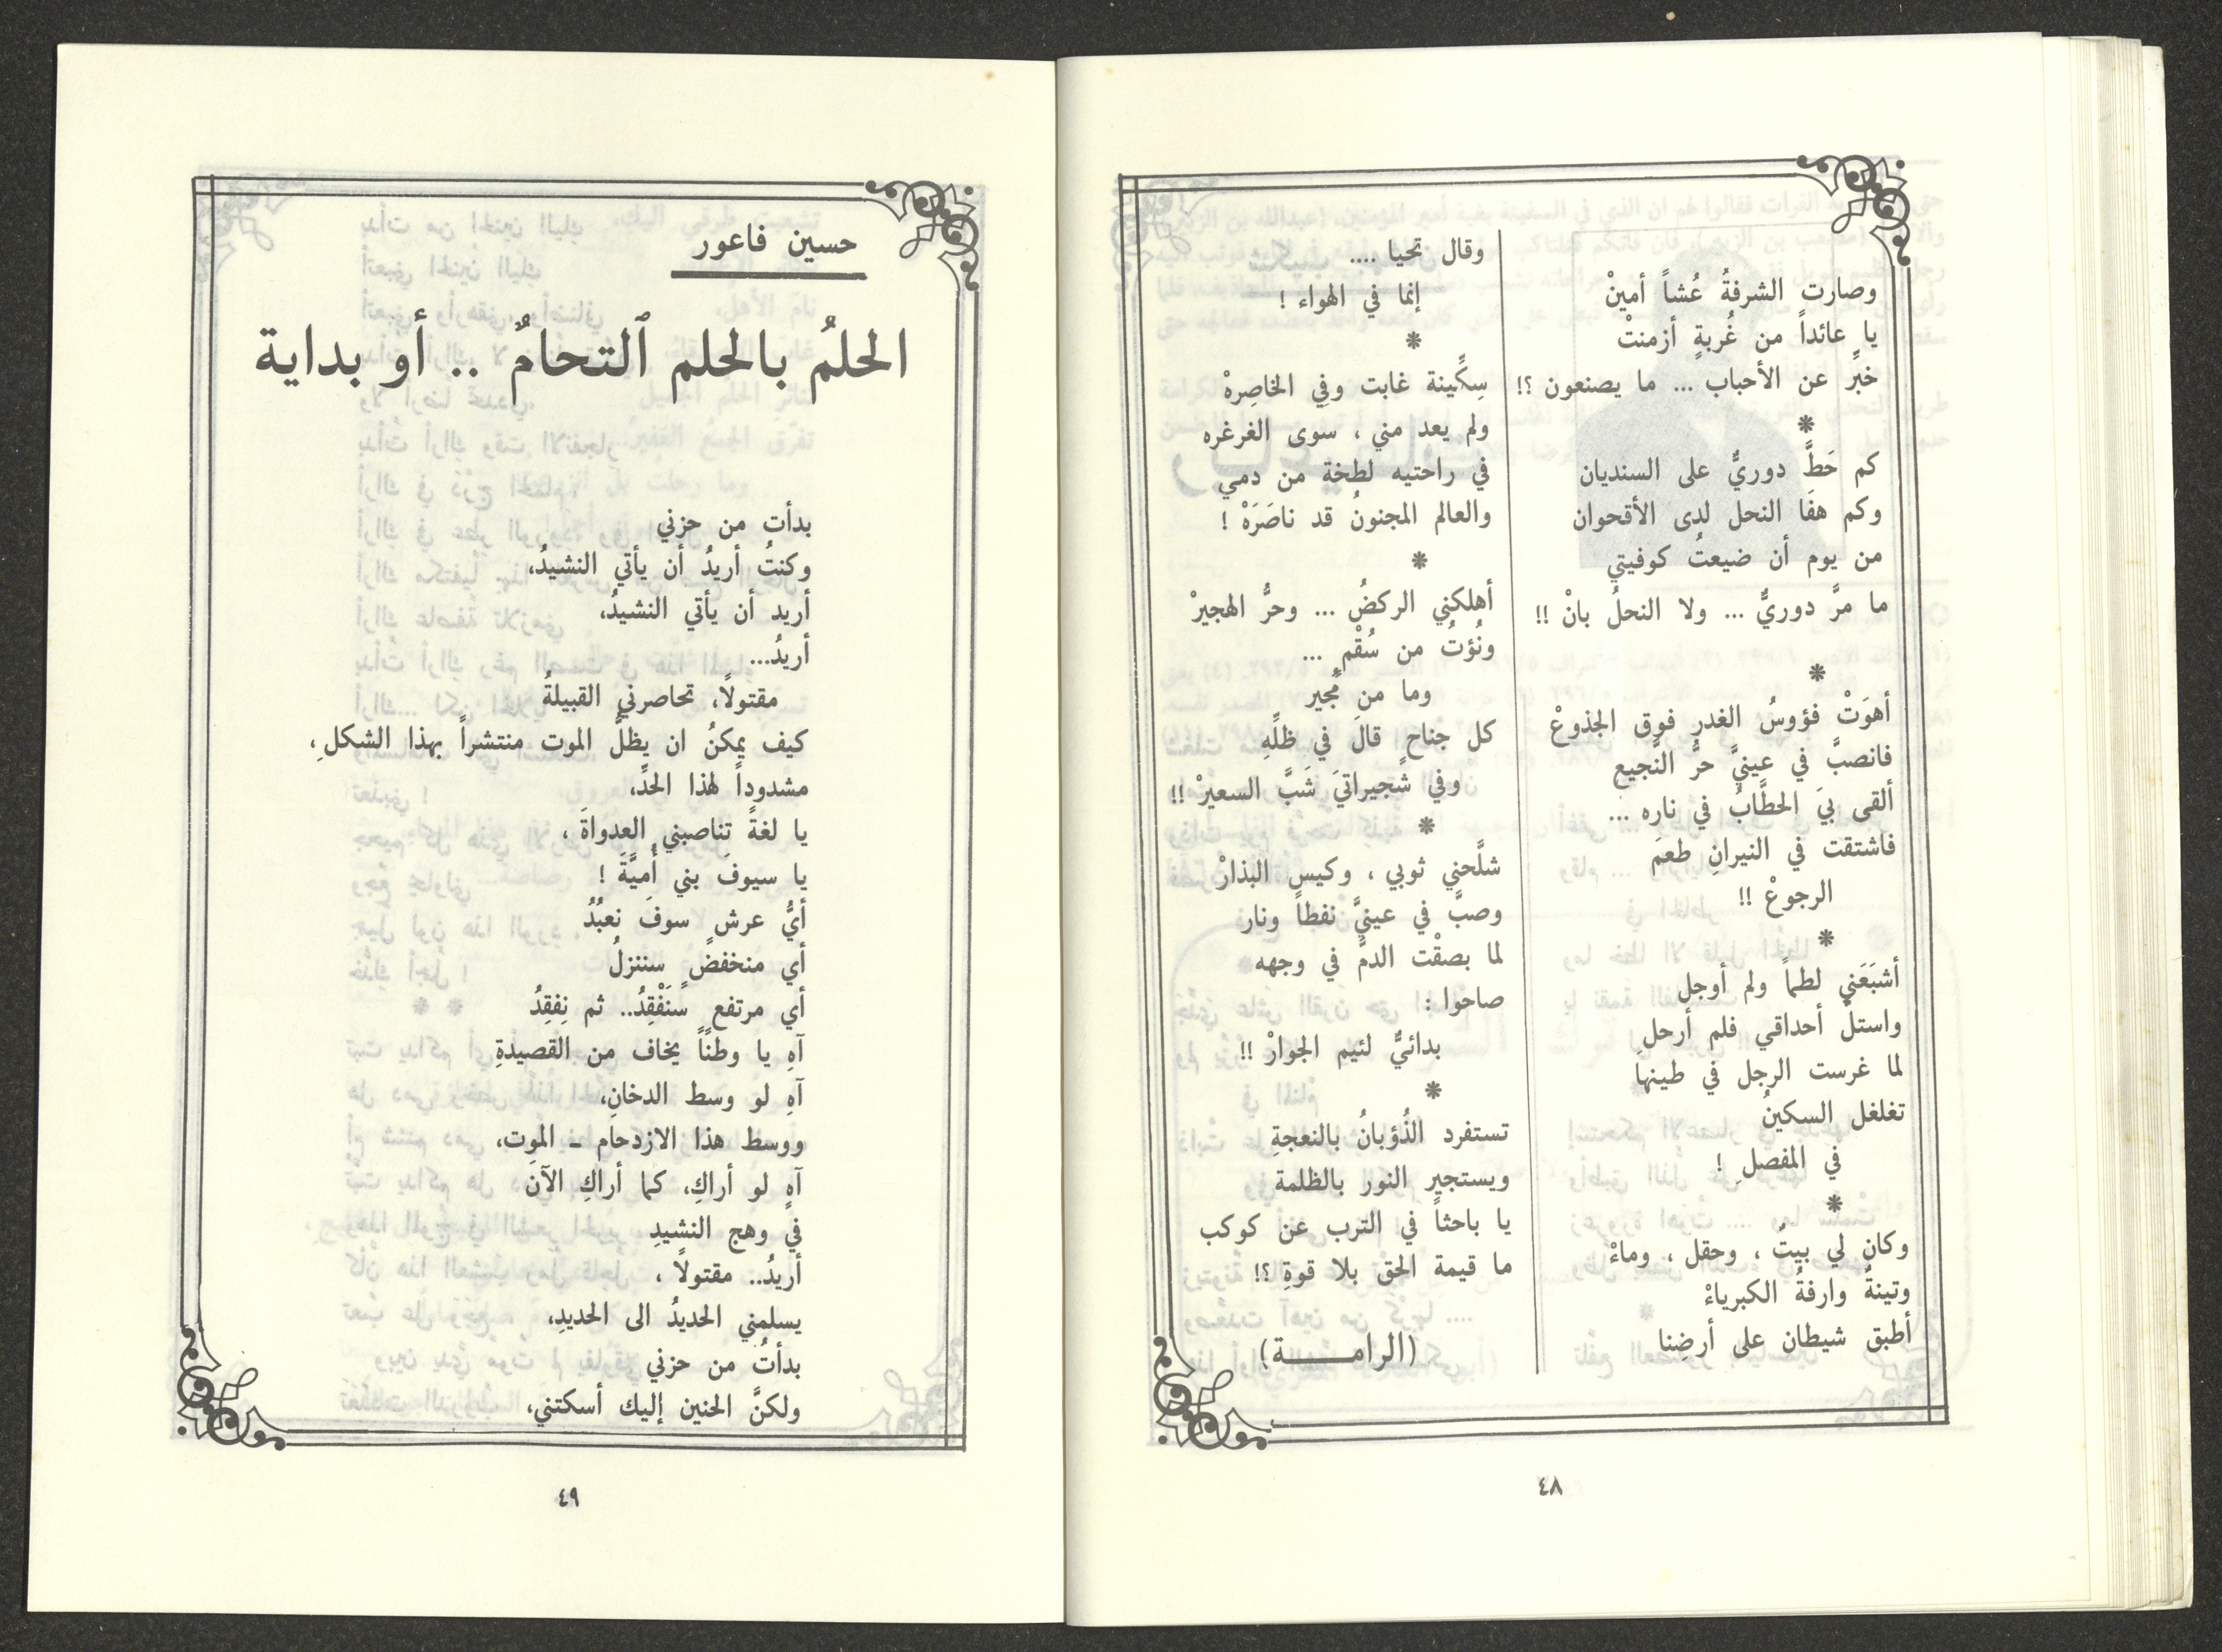 وصارت الشرفةُ عُشاً أمينْ
يا عائداً من غُربةٍ أزمنتْ
خبِّر عن الأحباب ... ما يصنعون ؟!
*
كم حَطَّ دوريٌّ على السنديان
وكم هفَا النحل لدى الأقحوان
من يوم أن ضيعتُ كوفيتي
ما مرَّ دوريٌّ ... ولا النحلُ بانْ !!
*
أهوَتْ فؤوسُ الغدرِ فوق الجذوعْ
فانصبَّ في عينيَّ حرُّ النَّجيع
ألقى بيَ الحطَّابُ في ناره ...
فاشتقت في النيرانِ طعمَ
الرجوعْ !!
*
أشبَعَني لطماً ولم أوجلِ
واستلَّ أحداقي فلم أرحلِ
لما غرست الرجل في طينها
تغلغل السكينُ
في المفصلِ !
*
وكان لي بيتٌ ، وحقل ، وماءْ
وتينةٌ وارفةُ الكبرياءْ
أطبق شيطان على أرضِنا
وقال تحيا ....
إنما في الهواء !
*
سِكِّينة غابت وفِي الخاصِرهْ
ولم يعد مني ، سوى الغرغره
في راحتيه لطخة من دمي
والعالم المجنونُ قد ناصَرَهْ !
*
أهلكني الركضُ ... وحرُّ الهجيرْ
ونُؤتُ من سُقْمٍ ...
وما من مُجير
كل جناحٍ قالَ في ظلِّهِ
وفي شجيراتيَ شَبَّ السعيرْ !!
*
شلَّحني ثوبي ، وكيس البذارْ
وصبَّ في عينيَّ نفطاً ونار
لما بصقْت الدمَّ في وجهه
صاحوا :
بدائيٌّ لئيم الجوارْ !!
*
تستفرد الذُؤبانُ بالنعجةِ
ويستجير النور بالظلمة
يا باحثاً في الترب عن كوكب
ما قيمة الحق بلا قوةِ ؟!
(الرامــــــة)
٤٨
حسين فاعور
الحلمُ بالحلم ٱلتحامٌ .. أو بداية
بدأت من حزني
وكنتُ أريدُ أن يأتي النشيدُ،
أريد أن يأتي النشيدُ،
أريدُ...
مقتولًا، تحاصرني القبيلةُ
كيف يمكنُ ان يظلَّ الموت منتشراً بهذا الشكلِ،
مشدوداً لهذا الحدِّ،
يا لغةً تناصبني العدواةَ ،
يا سيوفَ بني أُميَّةَ !
أيُّ عرشٍ سوفَ نعبُدُ
أي منخفضٍ سننزلُ
أي مرتفعٍ سَنَفْقِدُ.. ثم نِفقِدُ
آهِ يا وطناً يخاف من القصيدةِ
آهِ لو وسط الدخانِ،
ووسط هذا الازدحام ـ الموت،
آهِ لو أراكِ، كما أراكِ الآنَ
في وهج النشيدِ
أريدُ.. مقتولًا ،
يسلمني الحديدُ الى الحديدِ،
بدأتُ من حزني
ولكنَّ الحنين إليك أسكتني،
٤٩